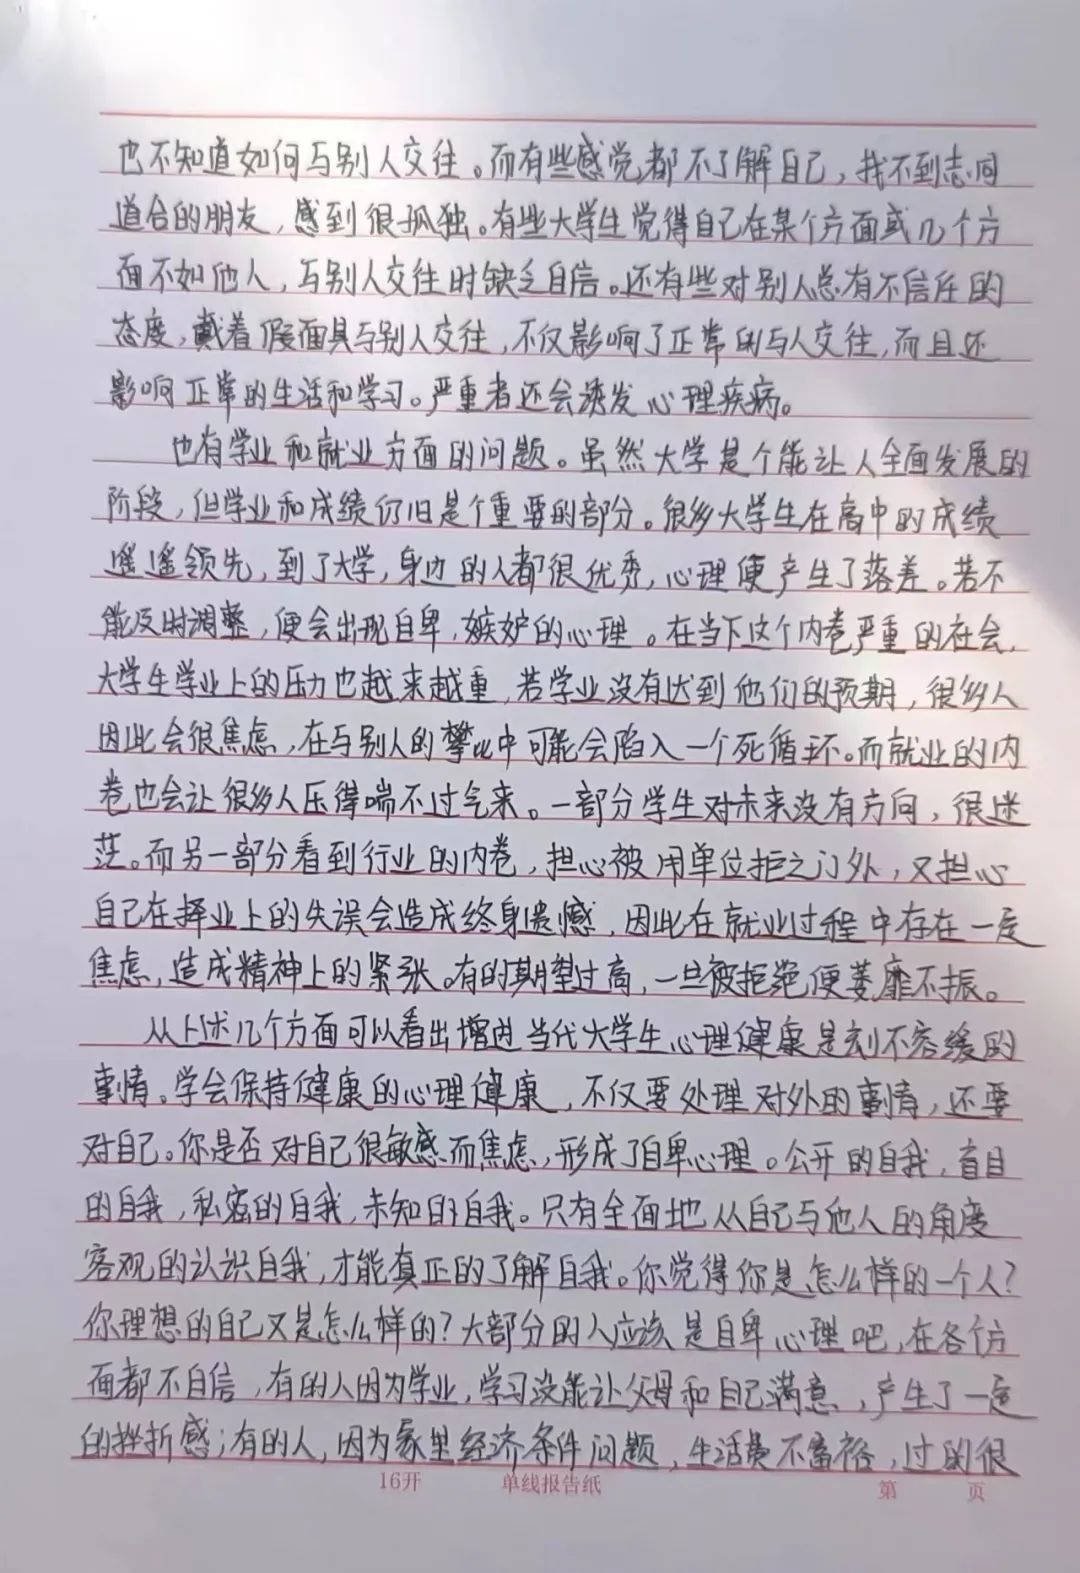 也不知道如何与别人交往。而有些感觉都不了解自己，找不到志同
道合的朋友，感到很孤独。有些大学生觉得自己在某个方面或几个方
面不如他人，与别人交往时缺乏自信。还有些对别人总有不信任的
态度，戴着假面具与别人交往，不仅影响了正常的与人交往，而且还
影响正常的生活和学习。严重者还会诱发心理疾病。
也有学业和就业方面的问题。虽然大学是个能让人全面发展的
阶段，但学业和成绩仍旧是个重要的部分。很多大学生在高中的成绩
遥遥领先，到了大学，身边的人都很优秀，心理便产生了落差。若不
能及时调整，便会出现自卑，嫉妒的心理。在当下这个内卷严重的社会，
大学生学业上的压力也越来越重，若学业没有达到他们的预期，很多人
因此会很焦虑，在与别人的攀比中可能会陷入一个死循环。而就业的内
卷也会让很多人压得喘不过气来。一部分学生对未来没有方向，很迷
茫。而另一部分看到行业的内卷，担心被用单位拒之门外，又担心
自己在择业上的失误会造成终身遗憾，因此在就业过程中存在一定
焦虑，造成精神上的紧张。有的期望过高，一旦被拒绝便萎靡不振。
从上述几个方面可以看出增进当代大学生心理健康是刻不容缓的
事情。学会保持健康的心理健康，不仅要处理对外的事情，还要
对自己。你是否对自己很敏感而焦虑，形成了自卑心理。公开的自我，盲目
的自我，私密的自我，未知的自我。只有全面地从自己与他人的角度
客观的认识自我，才能真正的了解自我。你觉得你是怎么样的一个人？
你理想的自己又是怎么样的？大部分的人应该是自卑心理吧，在各个方
面都不自信，有的人因为学业，学习没能让父母和自己满意，产生了一定
的挫折感；有的人，因为家里经济条件问题，生活费不富裕，过的很
16开 单线报告纸 第 页